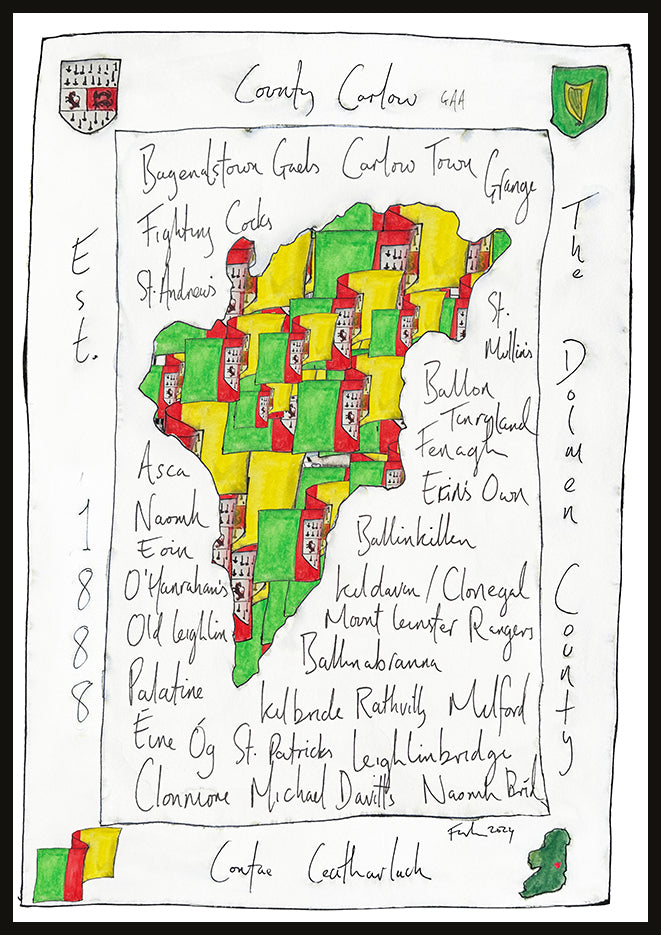 County Carlow GAA
Bagenalstown Gaels Carlow Town Grange
Fighting Cocks
St. Andrew's
St. Mullin's
Ballon
Tinryland
Fenagh
Erin's Own
Asca
Naomh Eoin
Ballinkillen
O'Hanrahan's
Kildavin / Clonegal
Old Leighlin
Mount Leinster Rangers
Ballinabranna
Palatine
Kilbride Rathvilly Milford
Éire Óg St. Patricks Leighlinbridge
Clonmore Michael Davitt's Naomh Bríd
Est. 1888
The Dolmen County
2024
Contae Ceatharlach